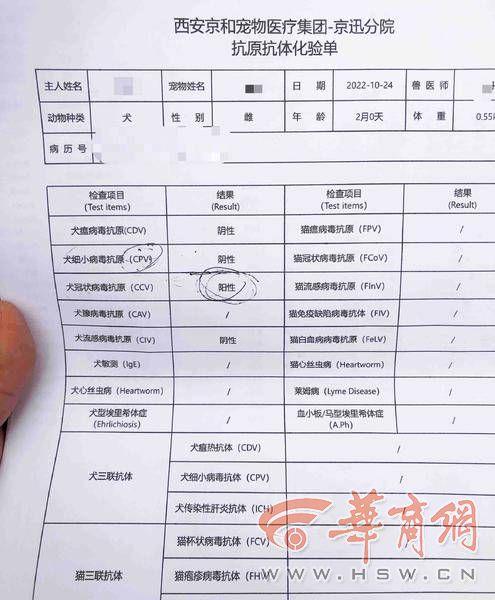 西安京和宠物医疗集团-京迅分院
抗原抗体化验单
主人姓名 宠物姓名 日 期 2022-10-24 兽医师
动物种类 犬 性 别 雌 年 龄 2月0天 体 重 0.55
病历号
检查项目 结果 检查项目 结果
(Test items) (Result) (Test items) (Result)
犬瘟病毒抗原(CDV) 阴性 猫瘟病毒抗原(FPV) /
犬细小病毒抗原(CPV) 阴性 猫冠状病毒抗原(FCoV) /
犬冠状病毒抗原(CCV) 阳性 猫流感病毒抗原(FInV) /
犬腺病毒抗原(CAV) / 猫免疫缺陷病毒抗体(FIV) /
犬流感病毒抗原(CIV) 阴性 猫白血病病毒抗原(FeLV) /
犬敏测(IgE) / 猫心丝虫病(Heartworm) /
犬心丝虫病(Heartworm) / 莱姆病(Lyme Disease) /
犬型埃里希体症 / 血小板/马型埃里希体症 /
(Ehrlichiosis) (A.Ph)
犬三联抗体
犬瘟热抗体(CDV) /
犬细小病毒抗体(CPV) /
犬传染性肝炎抗体(ICH) /
猫三联抗体
猫杯状病毒抗体(FCV)
猫疱疹病毒抗体(FHV)
華商網
WWW.HSW.CN